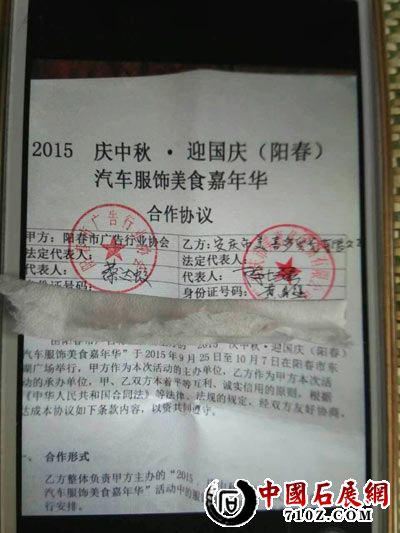 2015 庆中秋·迎国庆（阳春）
汽车服饰美食嘉年华
合作协议
甲方：阳春市广告行业协会 乙方：安庆市
法定代表人： 法定代表人：
代表人： 代表人：
身份证号码：
迎国庆（阳春）
汽车服饰美食嘉年华”于2015年9月25日至10月7日在阳春市东
湖广场举行，甲方作为本次活动的主办单位，乙方作为甲方本次活
动的承办单位，甲、乙双方本着平等互利、诚实信用的原则，根据
《中华人民共和国合同法》等法律、法规的规定，经双方友好协商，
达成本协议如下条款内容，以资共同遵守。
一、合作形式
乙方整体负责甲方主办的“2015
汽车服饰美食嘉年华”活动中的
行安排。
中國石展網
7102.COM